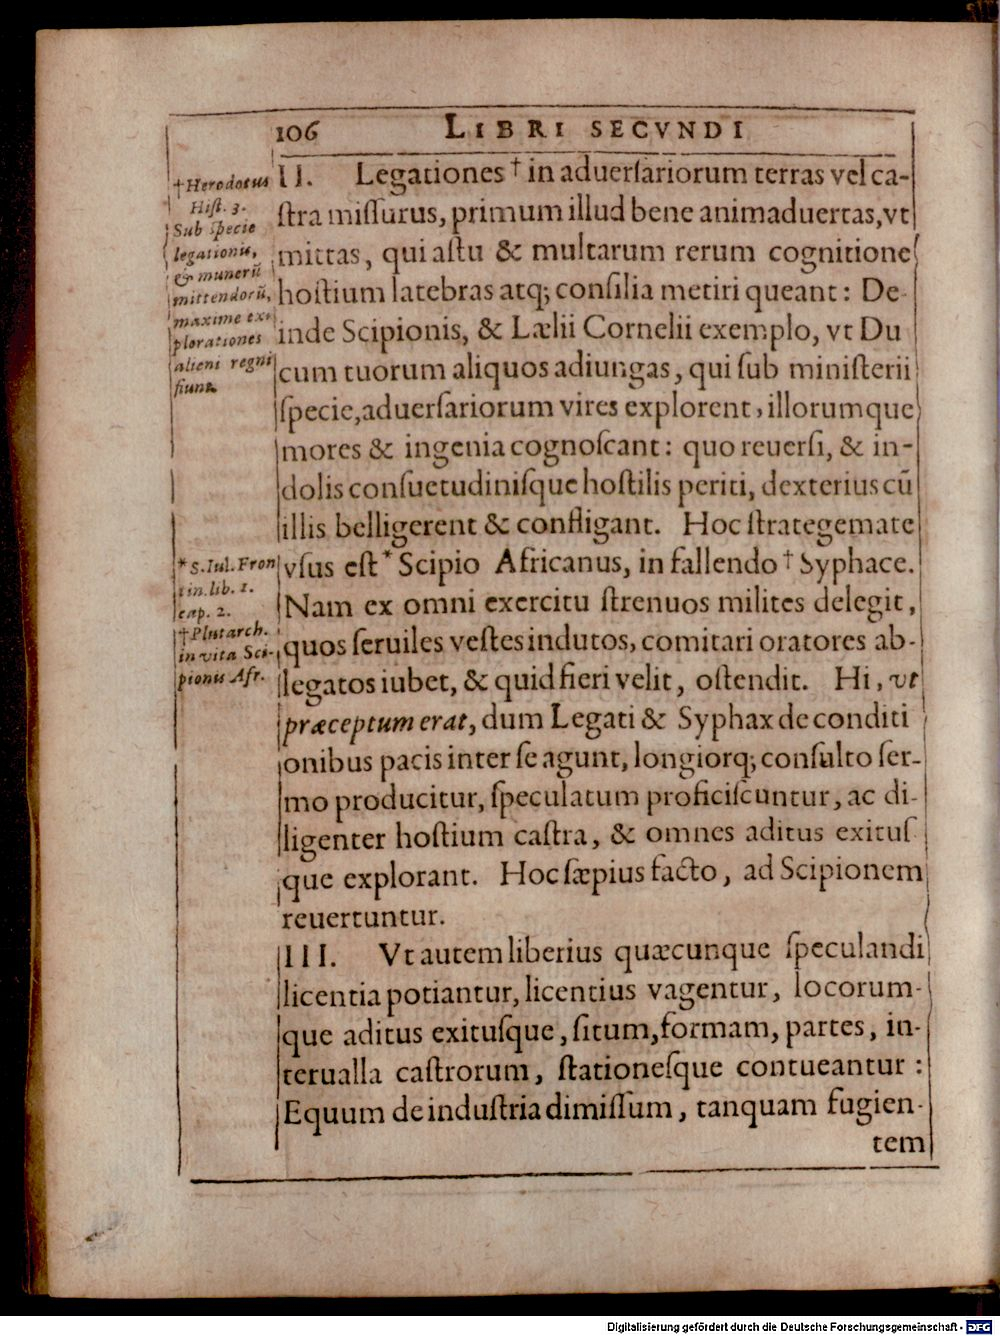 106 LIBRI SECVNDI
†Herodotus
Hiſt. 3.
Sub ſpecie
legationis,
& munerū
mittendorū,
maxime ex-
plorationes
alieni regni
fiunt.
II. Legationes † in aduerſariorum terras vel ca-
ſtra miſſurus, primum illud bene animaduertas, vt
mittas, qui aſtu & multarum rerum cognitione
hoſtium latebras atq; conſilia metiri queant: De-
inde Scipionis, & Lælii Cornelii exemplo, vt Du
cum tuorum aliquos adiungas, qui ſub miniſterii
ſpecie, aduerſariorum vires explorent, illorumque
mores & ingenia cognoſcant: quo reuerſi, & in-
dolis conſuetudiniſque hoſtilis periti, dexterius cū
illis belligerent & confligant. Hoc ſtrategemate
vſus eſt * Scipio Africanus, in fallendo † Syphace.
Nam ex omni exercitu ſtrenuos milites delegit,
quos ſeruiles veſtes indutos, comitari oratores ab-
legatos iubet, & quid fieri velit, oſtendit. Hi, vt
præceptum erat, dum Legati & Syphax de conditi
onibus pacis inter ſe agunt, longiorq; conſulto ſer-
mo producitur, ſpeculatum proficiſcuntur, ac di-
ligenter hoſtium caſtra, & omnes aditus exituſ
que explorant. Hoc ſæpius facto, ad Scipionem
reuertuntur.
* S. Iul. Fron
tin. lib. 1.
cap. 2.
†Plutarch.
in vita Sci-
pionis Afr.
III. Vt autem liberius quæcunque ſpeculandi
licentia potiantur, licentius vagentur, locorum-
que aditus exituſque, ſitum, formam, partes, in-
terualla caſtrorum, ſtationeſque contueantur :
Equum de induſtria dimiſſum, tanquam fugien-
tem
Digitalisierung gefördert durch die Deutsche Forschungsgemeinschaft - DFG